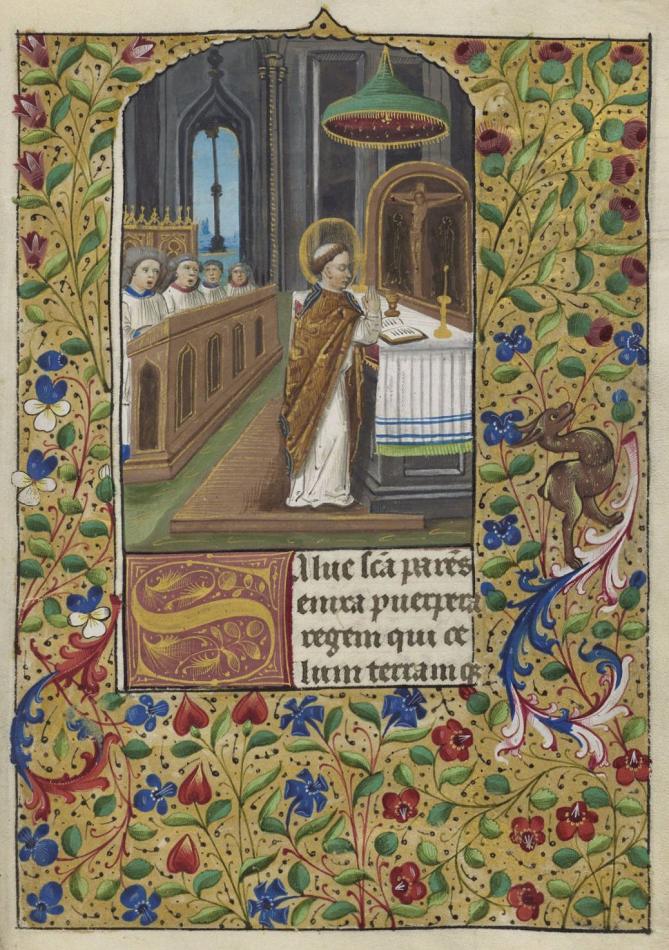 Salue sc̃a parẽs
enixa puerpera
regem qui ce
lum terram qꝫ